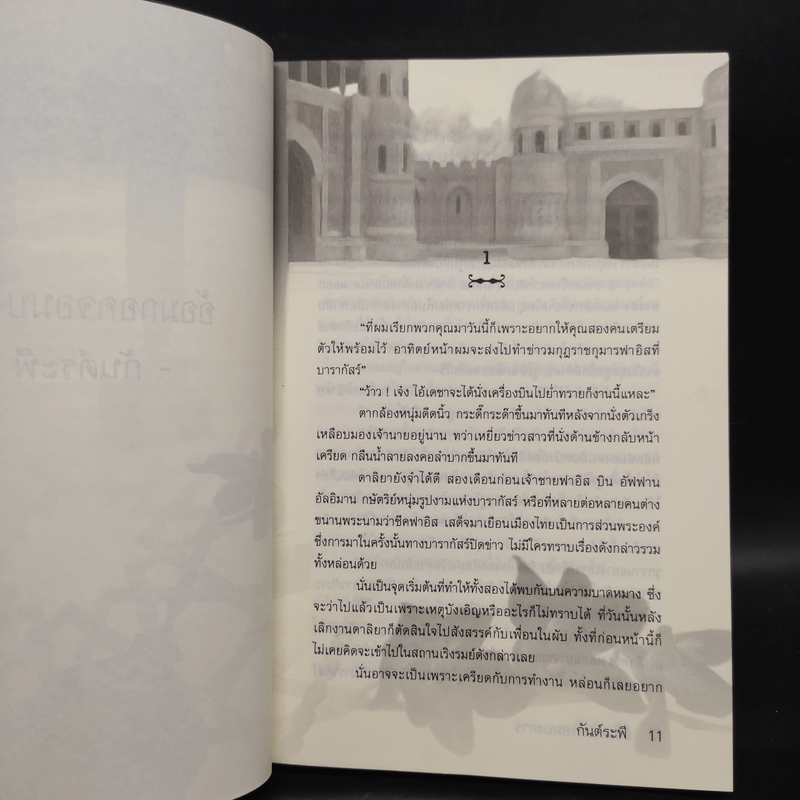 1
“ที่ผมเรียกพวกคุณมาวันนี้ก็เพราะอยากให้คุณสองคนเตรียม
ตัวให้พร้อมไว้ อาทิตย์หน้าผมจะส่งไปทำข่าวมกุฎราชกุมารฟาอิสที่
บารากัสร์”
“ว้าว ! เจ๋ง ไอ้เดชาจะได้นั่งเครื่องบินไปย่ำทรายก็งานนี้แหละ”
ตากล้องหนุ่มดีดนิ้ว กระดี๊กระด๊าขึ้นมาทันทีหลังจากนั่งตัวเกร็ง
เหลือบมองเจ้านายอยู่นาน ทว่าเหยี่ยวข่าวสาวที่นั่งด้านข้างกลับหน้า
เครียด กลืนน้ำลายลงคอลำบากขึ้นมาทันที
ดาลิยายังจำได้ดี สองเดือนก่อนเจ้าชายฟาอิส บิน อัฟฟาน
อัลอิมาน กษัตริย์หนุ่มรูปงามแห่งบารากัสร์ หรือที่หลายต่อหลายคนต่าง
ขนานพระนามว่าชีคฟาอิส เสด็จมาเยือนเมืองไทยเป็นการส่วนพระองค์
ซึ่งการมาในครั้งนั้นทางบารากัสร์ปิดข่าว ไม่มีใครทราบเรื่องดังกล่าวรวม
ทั้งหล่อนด้วย
นั่นเป็นจุดเริ่มต้นที่ทำให้ทั้งสองได้พบกันบนความบาดหมาง ซึ่ง
จะว่าไปแล้วเป็นเพราะเหตุบังเอิญหรืออะไรก็ไม่ทราบได้ ที่วันนั้นหลัง
เลิกงานดาลิยาก็ตัดสินใจไปสังสรรค์กับเพื่อนในผับ ทั้งที่ก่อนหน้านี้ก็
ไม่เคยคิดจะเข้าไปในสถานเริงรมย์ดังกล่าวเลย
นั่นอาจจะเป็นเพราะเครียดกับการทำงาน หล่อนก็เลยอยาก
กันต์ระพี 11